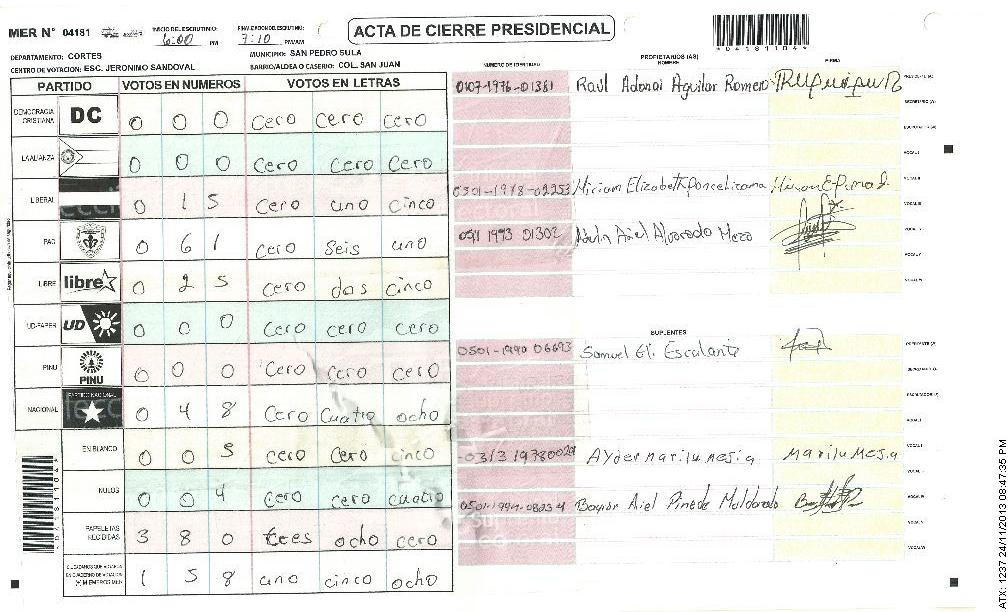 MER N° 04181
INICIO DEL ESCRUTINIO: 6:00 PM
FINALIZACION DEL ESCRUTINIO: 7:10 PM/AM
ACTA DE CIERRE PRESIDENCIAL
*04181104*
DEPARTAMENTO: CORTES
MUNICIPIO: SAN PEDRO SULA
CENTRO DE VOTACION: ESC. JERONIMO SANDOVAL
BARRIO/ALDEA O CASERIO: COL. SAN JUAN
PARTIDO VOTOS EN NUMEROS VOTOS EN LETRAS
DEMOCRACIA CRISTIANA DC 0 0 0 cero cero cero
LA ALIANZA 0 0 0 cero cero cero
LIBERAL 0 1 5 cero uno cinco
PAC 0 6 1 cero seis uno
LIBRE libre 0 2 5 cero dos cinco
UD-FAPER UD 0 0 0 cero cero cero
PINU PINU 0 0 0 cero cero cero
NACIONAL PARTIDO NACIONAL 0 4 8 cero cuatro ocho
EN BLANCO 0 0 5 cero cero cinco
NULOS 0 0 4 cero cero cuatro
PAPELETAS RECIBIDAS 3 8 0 tres ocho cero
CIUDADANOS QUE VOTARON EN CUADERNO DE VOTACION (+) MIEMBROS MER 1 5 8 uno cinco ocho
NUMERO DE IDENTIDAD PROPIETARIOS (AS) NOMBRE FIRMA
0107-1976-01381 Raul Adonai Aguilar Romero PRESIDENTE (A)
SECRETARIO (A)
ESCRUTADOR (A)
VOCAL I
0501-1978-02253 Miriam Elizabeth
1993 01302 Ariel Alvarado Meza
SUPLENTES
0501-1990 06693 Samuel Eli Escalante
VOCAL I
Marilu Mesia
Ariel Pineda Maldonado
ATX: 1237 24/11/2013 08:47:35 PM